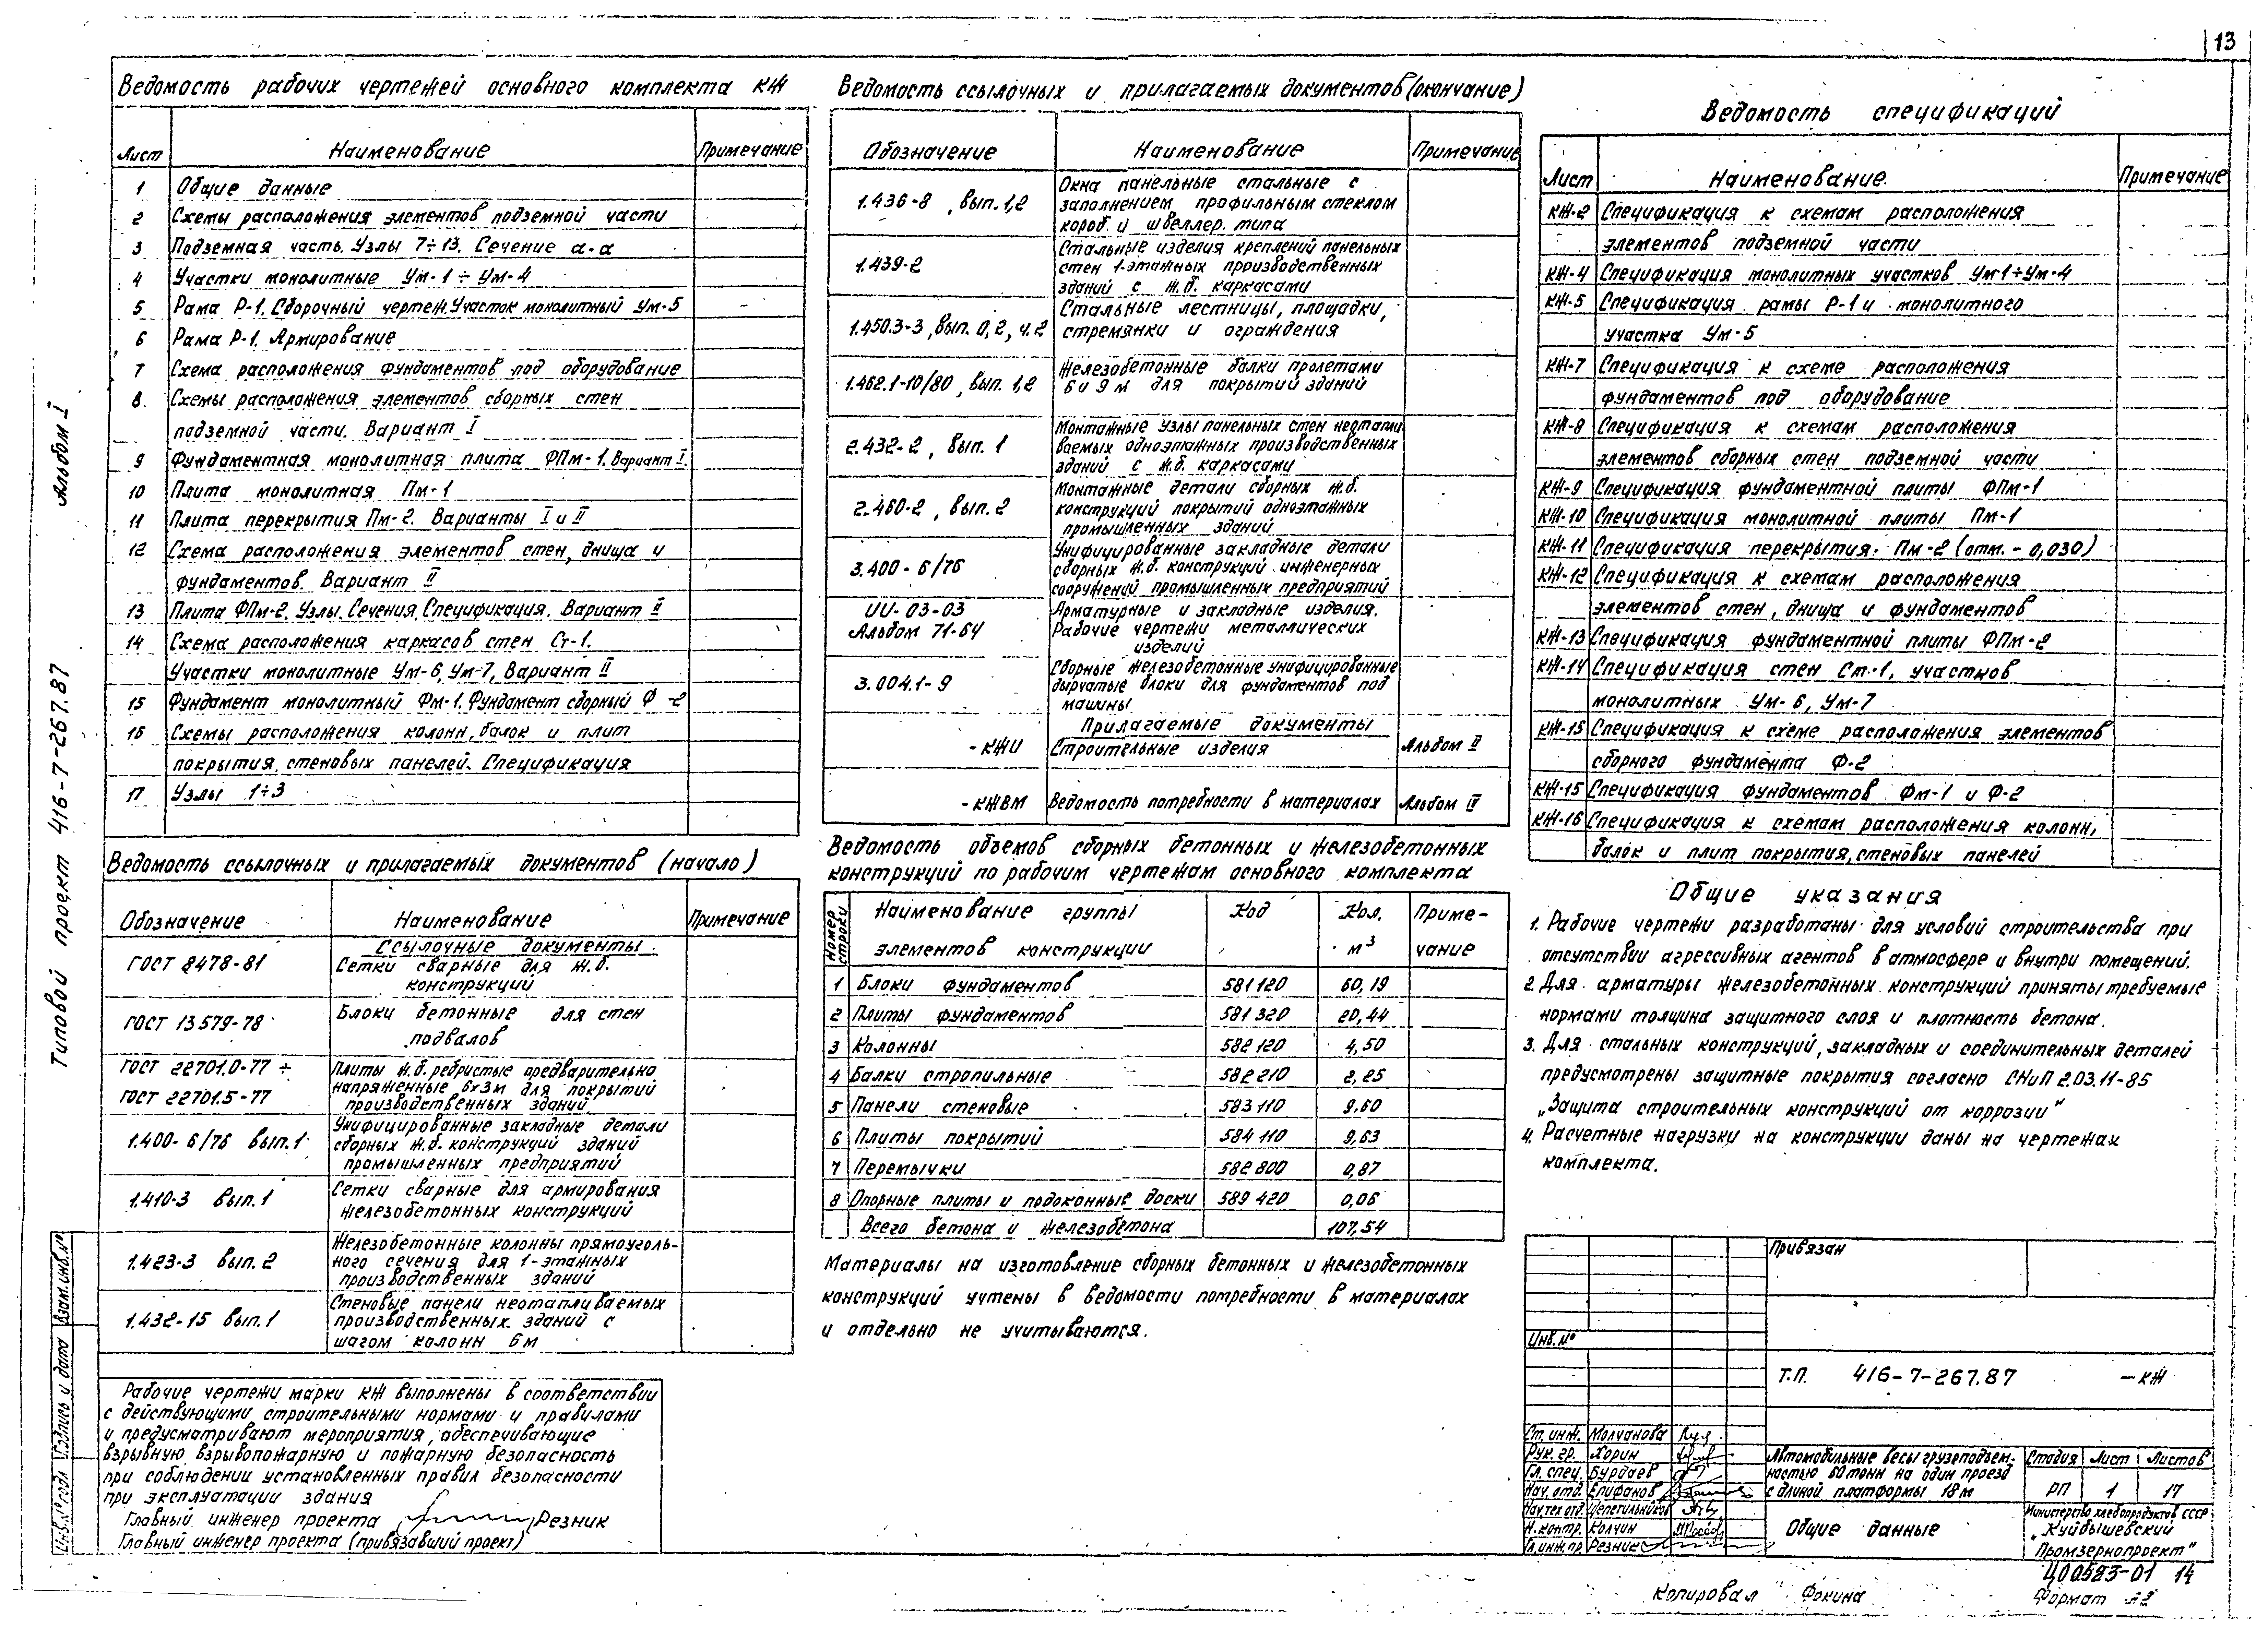 13
Ведомость рабочих чертежей основного комплекта КЖ
Лист Наименование Примечание
1 Общие данные
2 Схемы расположения элементов подземной части
3 Подземная часть. Узлы 7÷13. Сечение а-а
4 Участки монолитные Ум-1 ÷ Ум-4
5 Рама Р-1. Сборочный чертеж. Участок монолитный Ум-5
6 Рама Р-1. Армирование
7 Схема расположения фундаментов под оборудование
8 Схемы расположения элементов сборных стен
подземной части. Вариант I
9 Фундаментная монолитная плита ФПм-1. Вариант I.
10 Плита монолитная Пм-1
11 Плита перекрытия Пм-2. Варианты I и II
12 Схема расположения элементов стен, днища и
фундаментов. Вариант II
13 Плита ФПм-2. Узлы. Сечения. Спецификация. Вариант II
14 Схема расположения каркасов стен Ст-1.
Участки монолитные Ум-6, Ум-7, Вариант II
15 Фундамент монолитный Фм-1. Фундамент сборный Ф-2
16 Схемы расположения колонн, балок и плит
покрытия, стеновых панелей. Спецификация
17 Узлы 1÷3
Ведомость ссылочных и прилагаемых документов (начало)
Обозначение Наименование Примечание
Ссылочные документы
ГОСТ 8478-81 Сетки сварные для ж.б.
конструкций
ГОСТ 13579-78 Блоки бетонные для стен
подвалов
ГОСТ 22701.0-77 ÷ Плиты ж.б. ребристые предварительно
напряженные 6х3м для покрытий
ГОСТ 22701.5-77 производственных зданий.
1.400-6/76 вып.1 Унифицированные закладные детали
сборных ж.б. конструкций зданий
промышленных предприятий
1.410-3 вып.1 Сетки сварные для армирования
железобетонных конструкций
1.423-3 вып. 2 Железобетонные колонны прямоуголь-
ного сечения для 1-этажных
производственных зданий
1.432-15 вып.1 Стеновые панели неотапливаемых
производственных зданий с
шагом колонн 6м
Рабочие чертежи марки КЖ выполнены в соответствии
с действующими строительными нормами и правилами
и предусматривают мероприятия, обеспечивающие
взрывную, взрывопожарную и пожарную безопасность
при соблюдении установленных правил безопасности
при эксплуатации здания
Главный инженер проекта Резник
Главный инженер проекта (привязавший проект)
Ведомость ссылочных и прилагаемых документов (окончание)
Обозначение Наименование Примечание
1.436-8, вып. 1,2 Окна панельные стальные с
заполнением профильным стеклом
короб. и швеллер. типа
1.439-2 Стальные изделия креплений панельных
стен 1-этажных производственных
зданий с ж.б. каркасами
1.450.3-3, вып. 0, 2, ч. 2 Стальные лестницы, площадки,
стремянки и ограждения
1.462.1-10/80, вып. 1,2 Железобетонные балки пролетами
6 и 9 м для покрытий зданий
2.432-2, вып. 1 Монтажные узлы панельных стен неотапли
ваемых одноэтажных производственных
зданий с ж.б. каркасами
2.460-2, вып. 2 Монтажные детали сборных ж.б.
конструкций покрытий одноэтажных
промышленных зданий
3.400-6/76 Унифицированные закладные детали
сборных ж.б. конструкций инженерных
сооружений промышленных предприятий
ИИ-03-03 Арматурные и закладные изделия.
Альбом 71-64 Рабочие чертежи металлических
изделий
3.004.1-9 Сборные железобетонные унифицированные
дырчатые блоки для фундаментов под
машины
Прилагаемые документы
-КЖИ Строительные изделия Альбом II
-КЖВМ Ведомость потребности в материалах Альбом IV
Ведомость объемов сборных бетонных и железобетонных
конструкций по рабочим чертежам основного комплекта
Номер строки Наименование группы элементов конструкции Код Кол. м³ Приме-чание
1 Блоки фундаментов 581120 60,19
2 Плиты фундаментов 581320 20,44
3 Колонны 582120 4,50
4 Балки стропильные 582210 2,25
5 Панели стеновые 583110 9,60
6 Плиты покрытий 584110 9,63
7 Перемычки 582800 0,87
8 Опорные плиты и подоконные доски 589420 0,06
Всего бетона и железобетона 107,54
Материалы на изготовление сборных бетонных и железобетонных
конструкций учтены в ведомости потребности в материалах
и отдельно не учитываются.
Ведомость спецификаций
Лист Наименование Примечание
КЖ-2 Спецификация к схемам расположения
элементов подземной части
КЖ-4 Спецификация монолитных участков Ум-1÷Ум-4
КЖ-5 Спецификация рамы Р-1 и монолитного
участка Ум-5
КЖ-7 Спецификация к схеме расположения
фундаментов под оборудование
КЖ-8 Спецификация к схемам расположения
элементов сборных стен подземной части
КЖ-9 Спецификация фундаментной плиты ФПм-1
КЖ-10 Спецификация монолитной плиты Пм-1
КЖ-11 Спецификация перекрытия Пм-2 (отм. - 0,030)
КЖ-12 Спецификация к схемам расположения
элементов стен, днища и фундаментов
КЖ-13 Спецификация фундаментной плиты ФПм-2
КЖ-14 Спецификация стен Ст-1, участков
монолитных Ум-6, Ум-7
КЖ-15 Спецификация к схеме расположения элементов
сборного фундамента Ф-2
КЖ-15 Спецификация фундаментов Фм-1 и Ф-2
КЖ-16 Спецификация к схемам расположения колонн,
балок и плит покрытия, стеновых панелей
Общие указания
1. Рабочие чертежи разработаны для условий строительства при
отсутствии агрессивных агентов в атмосфере и внутри помещений.
2. Для арматуры железобетонных конструкций приняты требуемые
нормами толщина защитного слоя и плотность бетона.
3. Для стальных конструкций, закладных и соединительных деталей
предусмотрены защитные покрытия согласно СНиП 2.03.11-85
„Защита строительных конструкций от коррозии"
4. Расчетные нагрузки на конструкции даны на чертежах
комплекта.
Привязан
Инв. №
Т.П. 416-7-267.87 -КЖ
Ст. инж. Молчанова
Рук. гр. Хорин
Гл. спец. Бурдаев
Нач. отд. Епифанов
Нач. тех. отд. Цепетильников
Н. контр. Колчин
Гл. инж. пр. Резник
Автомобильные весы грузоподъем-
ностью 60 тонн на один проезд
с длиной платформы 18м
Стадия Лист Листов
РП 1 17
Общие данные
Министерство хлебопродуктов СССР
„Куйбышевский
Промзернопроект"
Ц00523-01 14
Копировал Фокина
Формат А2
Типовой проект 416-7-267.87 Альбом I
Взам. инв. №
Подпись и дата
Инв. № подл.